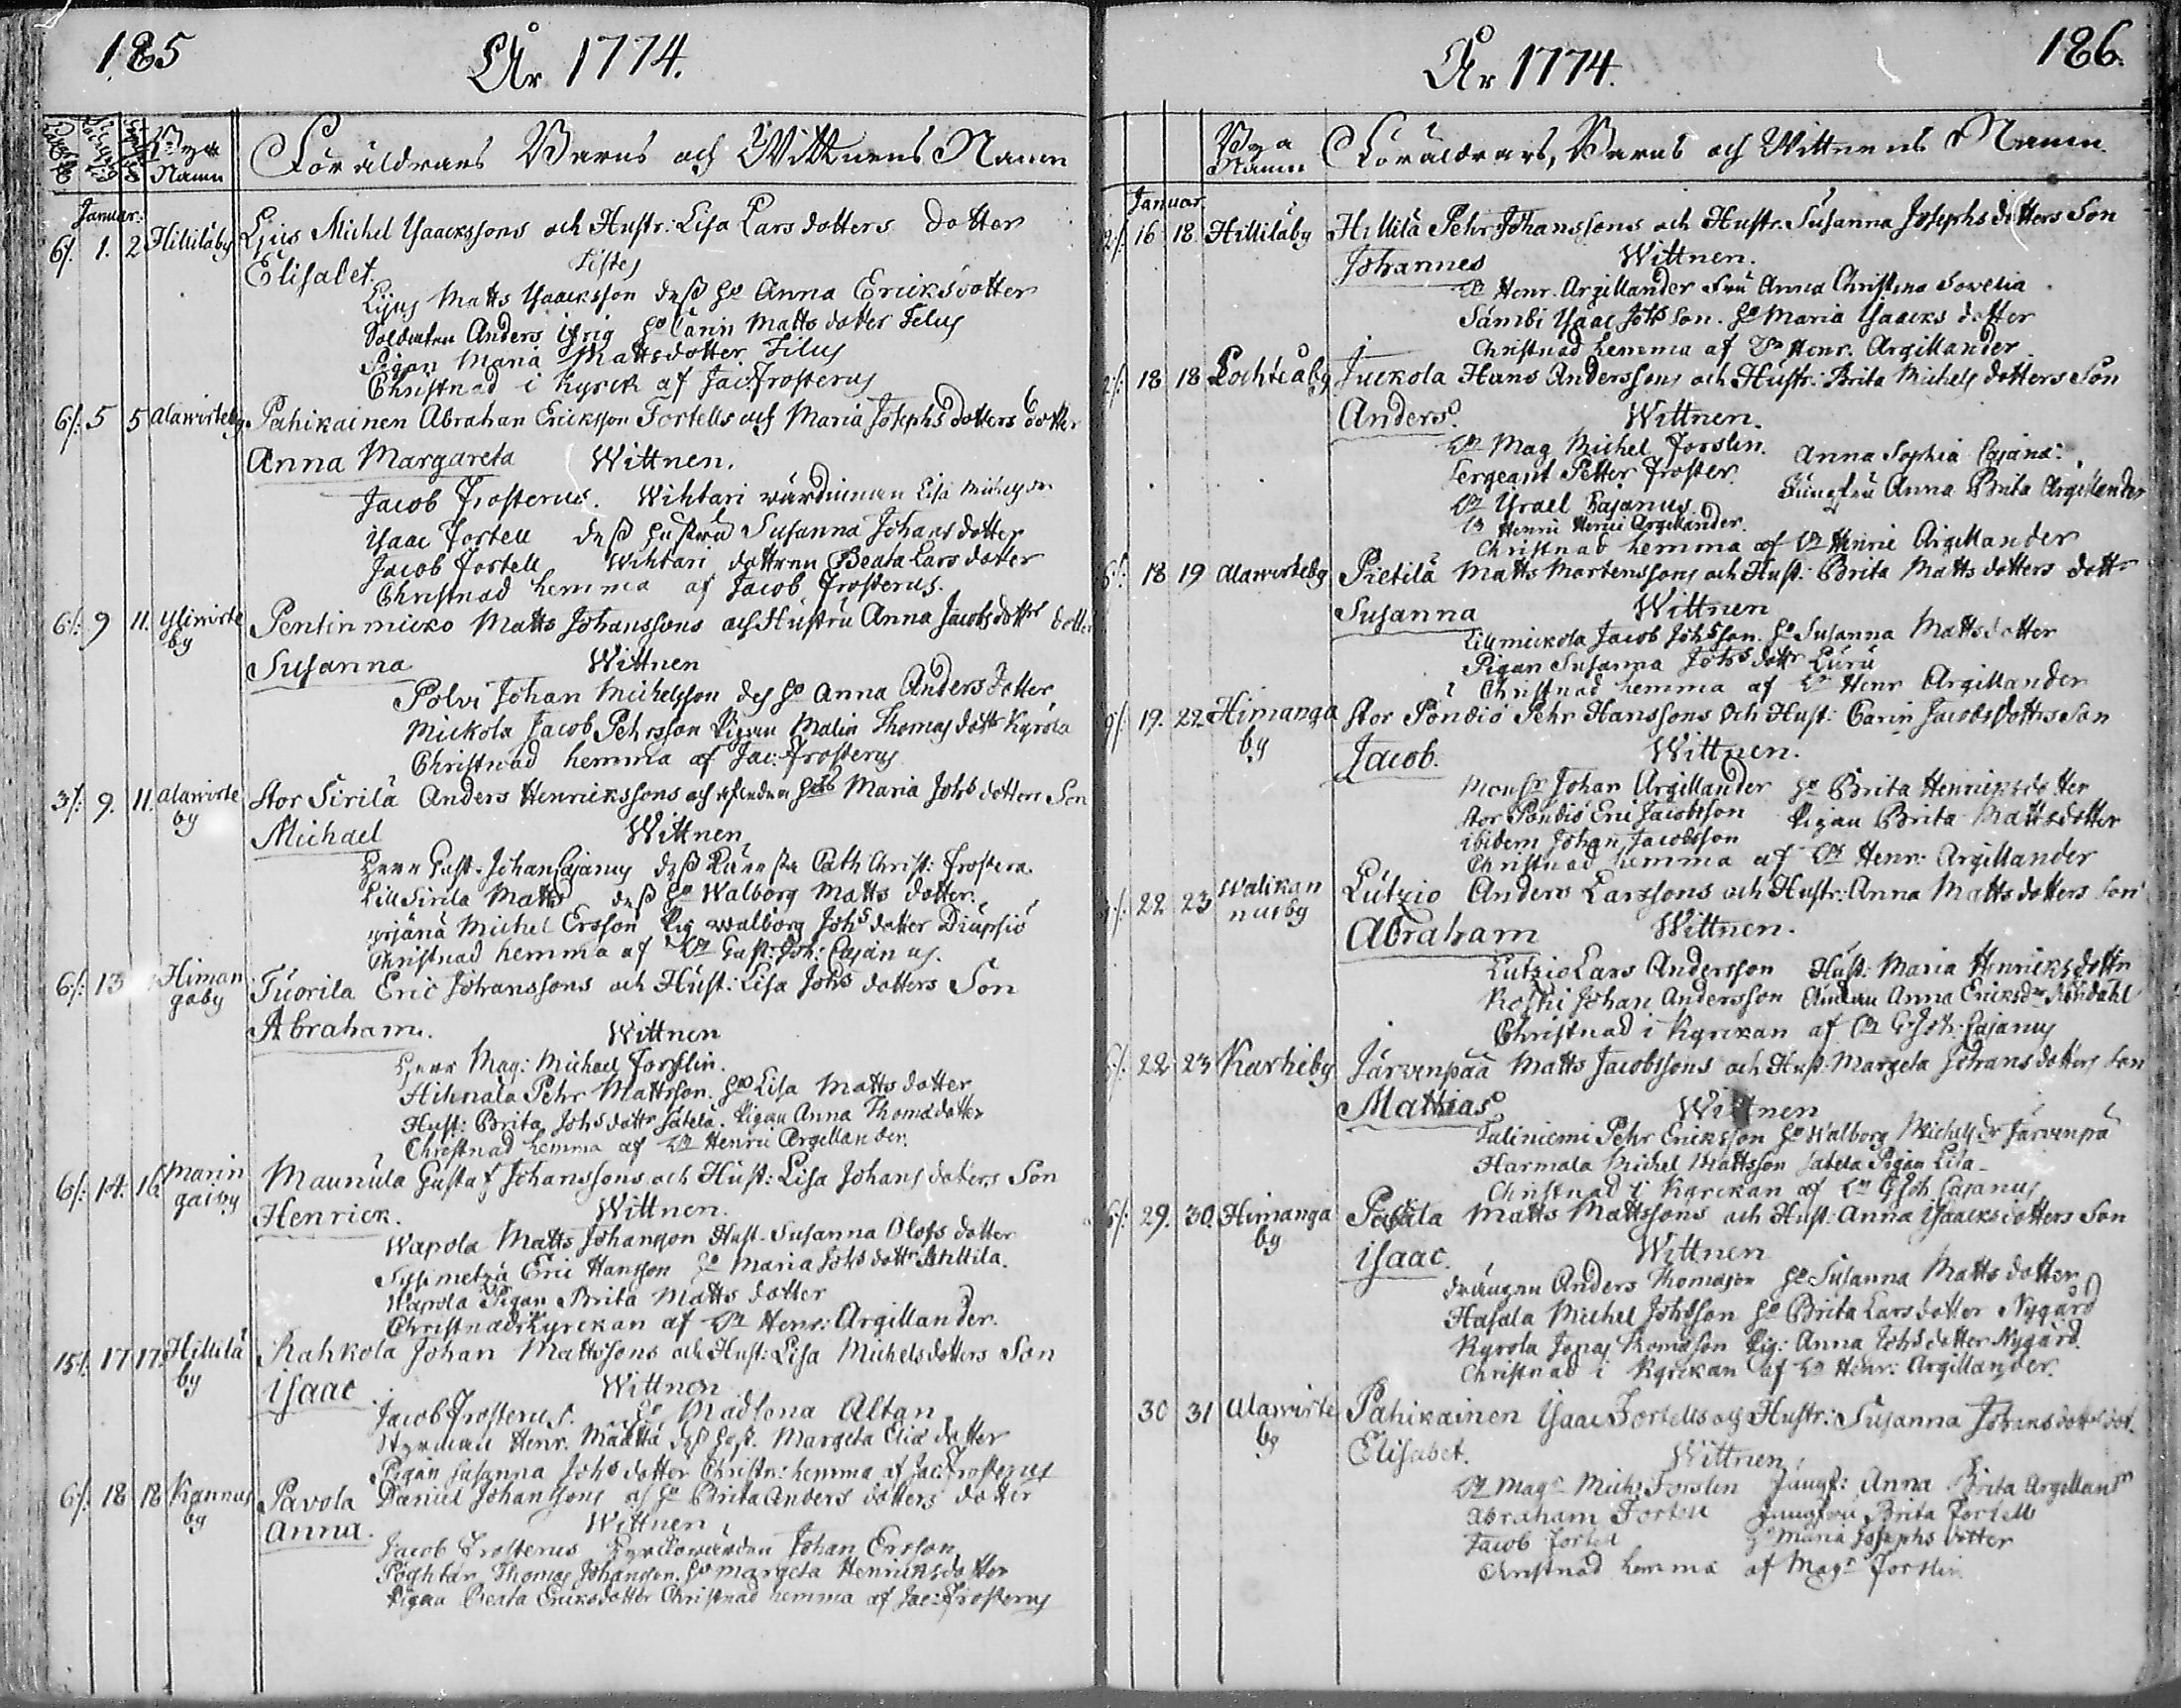 185
År 1774.
Bya Namn
Föräldrars Barns och Wittnens Namn
Januar:
6/. 1. 2 Hillilåby Ljus Michel Ysaackssons och Hustr: Lisa Lars dotters dotter
Elisabet. Testes
Ljus Matts Ysaacksson deß H:o Anna Ericksdotter
Soldaten Anders Ifrig H:o Carin Matts dotter
Pigan Maria Mattsdotter
Christnad i Kyrck af Jac: Frosterus
6/: 5 5 Alawirteby Pahikainen Abrahan Ericksson Fortells och Maria Josephs dotters dotter
Anna Margareta Wittnen.
Jacob Frosterus. Wihtari wärdinnan Lisa
Ysaac Fortell deß hustru Susanna Johans dotter
Jacob Fortell Wihtari dottren Beata Lars dotter
Christnad hemma af Jacob Frosterus.
6/: 9 11. Yliwirte by Pentinmicko Matts Johanssons och Hustru Anna Jacobs dottrs dotter
Susanna Wittnen
Polvi Johan Michelsson des H:o Anna Anders dotter
Mickola Jacob Pehrsson Pigan Malin Thomas dottr Kyrola
Christnad hemma af Jac: Frosterus
3/: 9. 11. Alawirte by Stor Sirilä Anders Henrickssons och Maria Johs dotters Son
Michael Wittnen
Herr Gust: Johan Cajanus deß Cath: Christ: Frostera.
Lill Sirila Matts deß H:o Walborg Matts dotter.
Yrjänä Michel Ersson Pig Walborg Johs dotter
Christnad hemma af Hr Gust: Joh: Cajanus.
6/: 13 Himan gaby Tuorila Eric Johanssons och Hust: Lisa Johs dotters Son
Abraham. Wittnen
Herr Mag: Michael Forsslin.
Hihnala Pehr Mattsson. H:o Lisa Matts dotter
Hust: Brita Johs dottr Pigan Anna Thomsdotter
Christnad hemma af Hr Henric Argillander.
6/: 14. 16 Marin gaisby Maunula Gustaf Johanssons och Hust: Lisa Johans dotters Son
Henrick. Wittnen.
Wapola Matts Johansson Hust. Susanna Olofs dotter
Sysimetzä Eric Hansson H:o Maria Johs dottr
Wapola Pigan Brita Matts dotter
Christnad i Kyrckan af Hr Henr: Argillander.
15/. 17 17. Hillilä by Rahkola Johan Mattssons och Hust: Lisa Michelsdotters Son
isaac. Wittnen
Jacob Frosterus. Madlena Altan
Styrman Henr. Määttä deß Margeta Elia dotter
Pigan Susanna Johs dotter Christn: hemma af Jac: Frosterus
6/: 18 18 Kannus by Pavola Daniel Johanssons och H:o Brita Anders dotters dotter
Anna. Wittnen
Jacob Frosterus Johan Ersson
Thomas Johansson. H:o Margeta Henricksdotter
Pigan Beata Ericksdotter Christnad hemma af Jac: Frosterus
186.
År 1774.
Bya Namn
Föräldrars, Barns och Wittnens Namn.
Januar
2/: 16 18 Hilliläby Hillilä Pehr Johanssons och Hustr. Susanna Josephs dotters Son
Johannes Wittnen.
Hr Henr. Argillander Fru Anna Christina
Sämbi Ysaac Johs Son. H:o Maria Ysaacks dotter
Christnad hemma af Hr Henr. Argillander
2/: 18 18 Lochteåby Juckola Hans Anderssons och Hustr: Brita Michels dotters Son
Anders. Wittnen.
Hr Mag Michel Forslin. Anna Sophia Cajana.
Sergeant Petter Froster. Jungfru Anna Brita Argillander
Hr Ysrael Cajanus
Hr Henric Argillander
Christnad hemma af Hr Henric Argillander
6/: 18 19 Alawirteby Pietilä Matts Mårtenssons och Hust: Brita Matts dotters dottr
Susanna Wittnen
Lillmickola Jacob Johsson. H:o Susanna Matts dotter
Pigan Susanna Johs dottr
Christnad hemma af Hr Henr Argillander
9/: 19. 22 Himanga by Stor Pöndiö Pehr Hanssons och Hust: Carin Jacobs dotters Son
Jacob. Wittnen.
Monsr Johan Argillander H:o Brita Henricksdotter
Stor Pöndiö Eric Jacobsson Pigan Brita Mattsdotter
ibidem Johan Jacobsson
Christnad hemma af Hr Henr: Argillander
22 23 Walikan nusby Lutzio Anders Larssons och Hustr: Anna Matts dotters Son
Abraham Wittnen.
Lutzio Lars Andersson Hust: Maria Henricksdottr
Koski Johan Andersson Anna Ericksdr
Christnad i Kyrckan af Hr G: Joh: Cajanus
6/: 22 23 Karhiby Järvenpää Matts Jacobssons och Hust: Margeta Johans dotters Son
Mathias Wittnen
Pehr Ericksson H:o Walborg Michels dr Järvenpä
Harmala Michel Mattsson Pigan Lisa
Christnad i Kyrckan af Hr G Joh Cajanus
6/: 29. 30. Himanga by Matts Mattssons och Hust: Anna Ysaacks dotters Son
isaac. Wittnen
drängen Anders Thomasson H:o Susanna Matts dotter
Hasala Michel Johsson H:o Brita Lars dotter Nygård
Kyrola Jonas Thomason Pig: Anna Johs dotter Nygård.
Christnad i Kyrckan af Hr Henr: Argillander.
30 31 Alawirte by Pahikainen Ysaac Fortells och Hustr: Susanna Johans dottrs dot.
Elisabet. Wittnen
Hr Magr Mich: Forslin Jungf: Anna Brita Argilland
Abraham Fortell Jungfru Brita Fortell
Jacob Fortell H:o Maria Josephs dotter
Christnad hemma af Magr Forslin